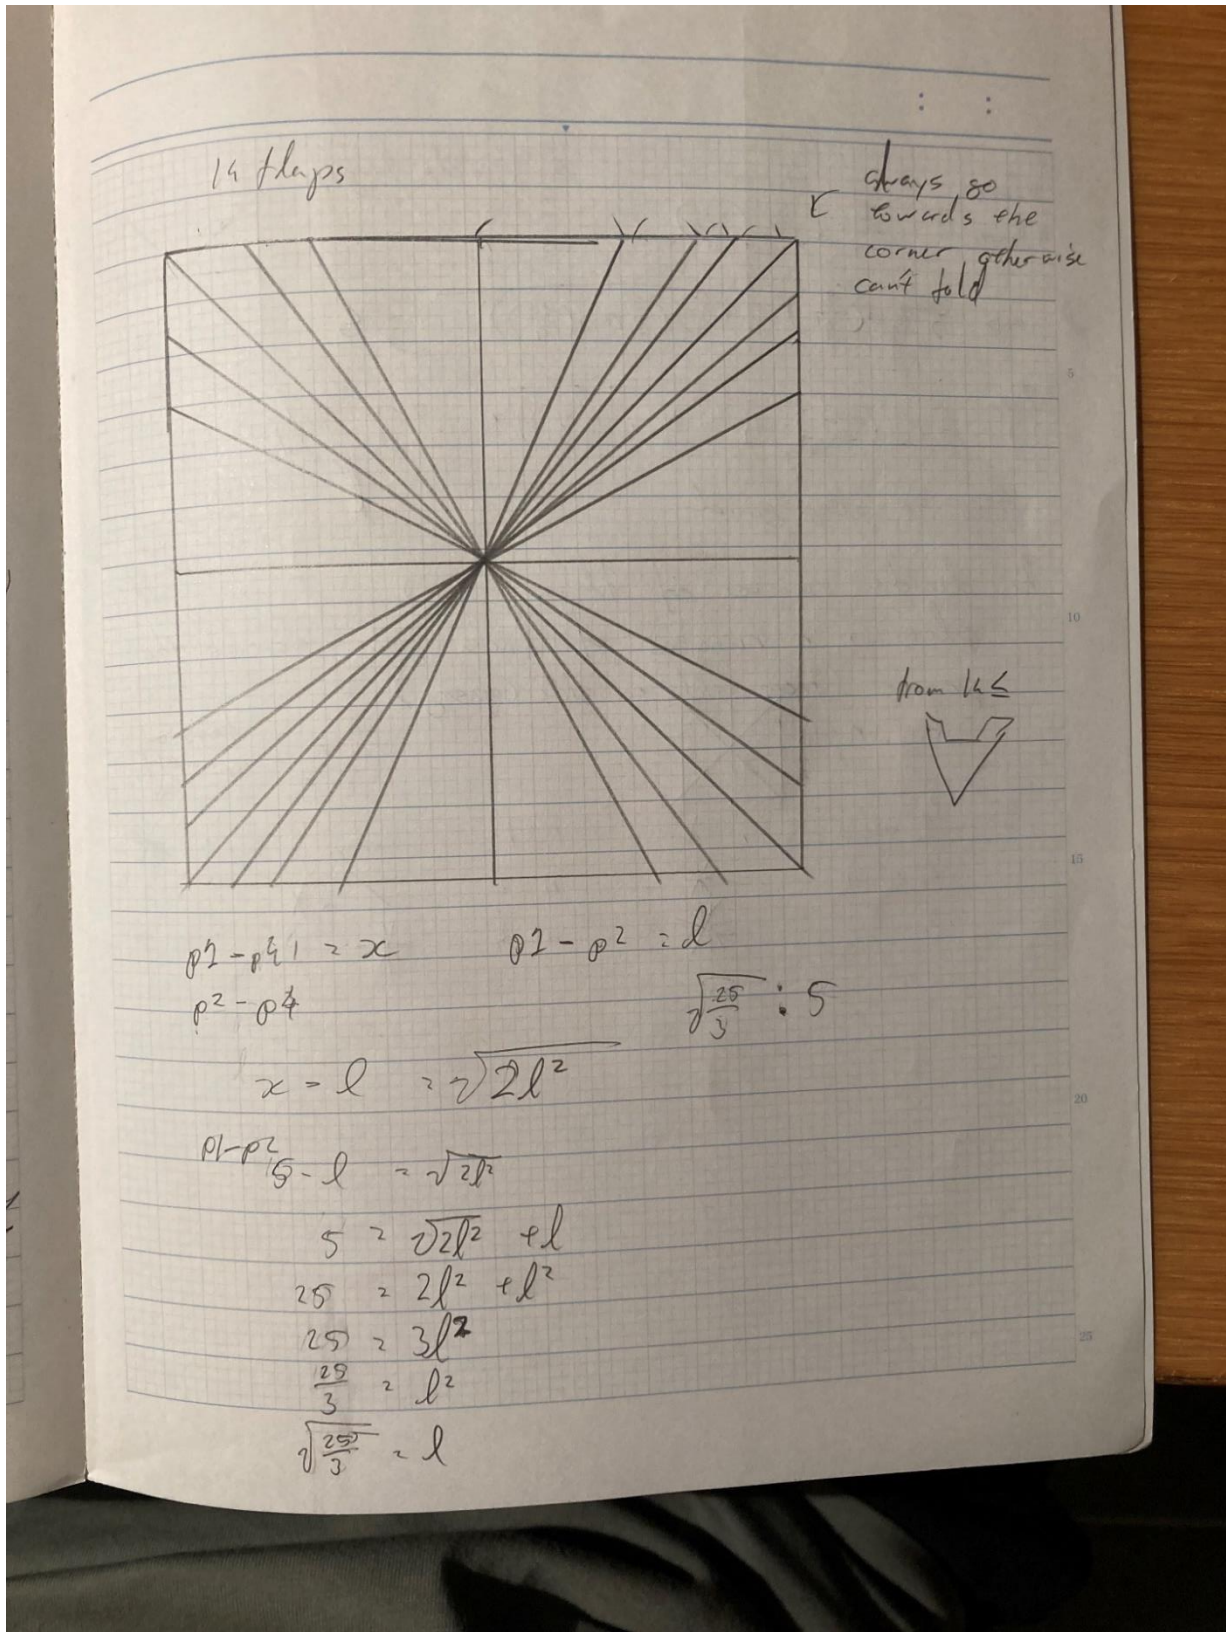 14 flaps
always go
towards the
corner otherwise
can't fold
5
10
from 14≤
15
p1-p41 = x
p1 - p2 = l
p2 - p4
√(25/3) : 5
x - l = √(2l²)
20
p1-p2
5 - l = √(2l²)
5 = √(2l²) + l
25 = 2l² + l²
25 = 3l²
25
25/3 = l²
√(25/3) = l